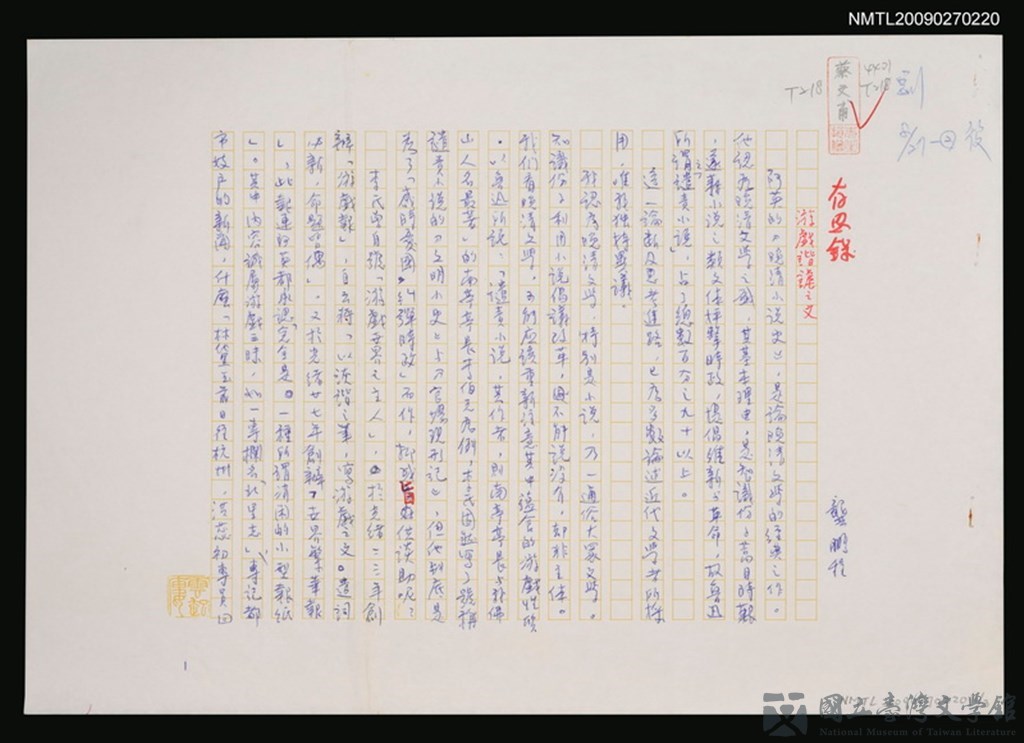 NMTL20090270220
T218
蔡文甫
T218
存目錄
游戲諧謔之文
龔鵬程
阿英的《晚清小說史》,是論晚清文學的經典之作。
他認為晚清文學之國,其基本理由,是知識份子蒿目時艱
,遂藉小說之類文体抨擊時政,提倡維新与革命,故魯迅
所謂之「譴責小說」,占了總數百分之九十以上。
這一論斷及思考進路,已為多數論述近代文學者所採
用,唯我獨持異議。
我認為晚清文學,特別是小說,乃一通俗大眾文學。
知識份子利用小說倡議改革,固不能說沒有,却非主体。
我們看晚清文學,即應該重新注意其中蘊含的游戲性質
。以魯迅所說:「譴責小說,其作者,則南亭亭長与我佛
山人名最著」的南亭亭長李伯元為例,李氏固然寫了號稱
譴責小說的《文明小史》与《官場現形記》,但他到底是
為了「感時憂國,糾彈時政」而作,抑或旨在供談助呢?
李氏嘗自號「游戲世界之主人」,於光緒二三年創
辦「游戲報」,自云將「以詼諧之筆,寫游戲之文。遣詞
必新,命題皆偶」。又於光緒廿七年創辦「世界繁華報
」,此報連阿英都承認完全是「一種所謂消閑的小型報紙
」。其中內容誠屬游戲三昧,如一專欄名「北里志」,專記都
市妓戶的新聞,什麼「林黛玉前日从杭州,洪蕊初專員回
1
國立臺灣文學館
National Museum of Taiwan Literature